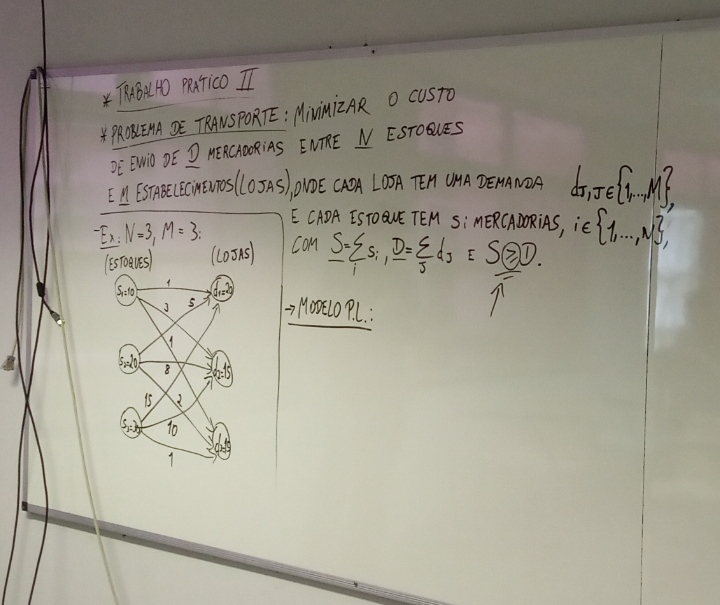 * TRABALHO PRÁTICO II
* PROBLEMA DE TRANSPORTE: MINIMIZAR O CUSTO
DE ENVIO DE D MERCADORIAS ENTRE N ESTOQUES
E M ESTABELECIMENTOS (LOJAS), ONDE CADA LOJA TEM UMA DEMANDA dj, j∈{1,...,M},
E CADA ESTOQUE TEM Si MERCADORIAS, i∈{1,...,N},
COM S=∑i si, D=∑j dj E S≥D.
→ MODELO P.L.:
- Ex: N=3, M=3:
(ESTOQUES) (LOJAS)
S1=10 1 d1=20
3 5
1
S2=20 8 d2=15
15 2
10
1